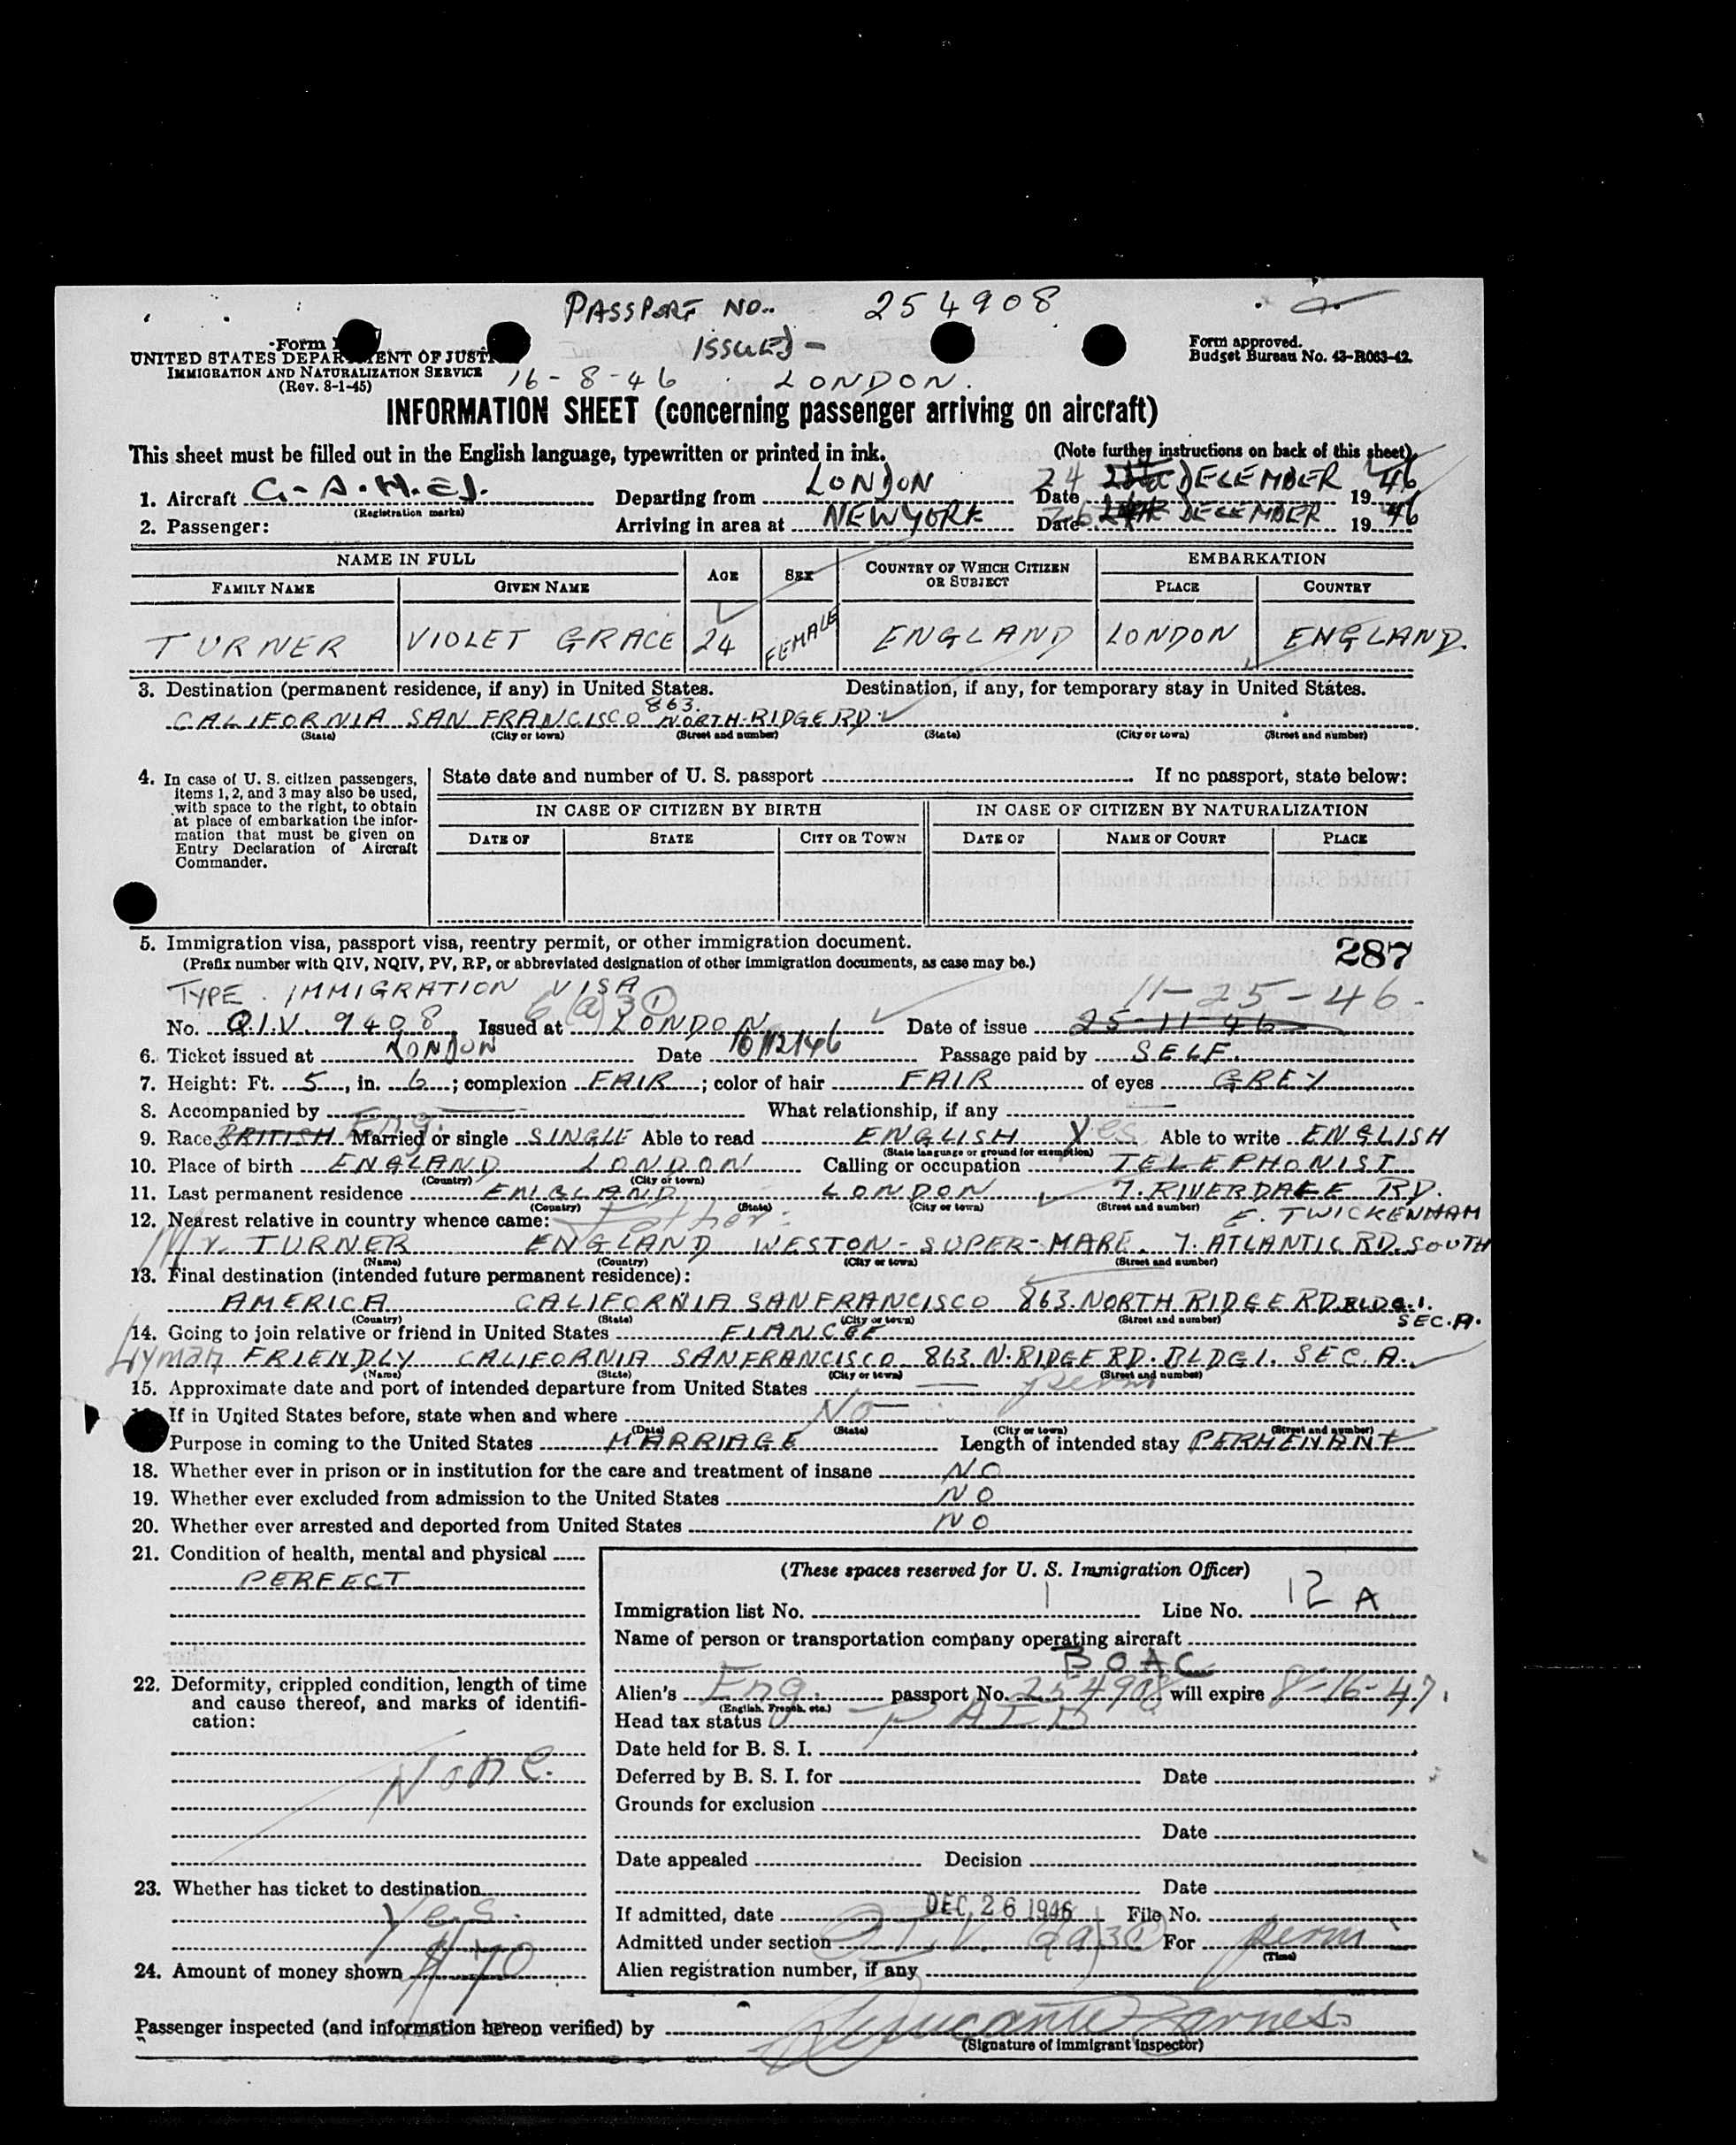 PASSPORT NO.. 254908
ISSUED -
Form
UNITED STATES DEPARTMENT OF JUSTICE
IMMIGRATION AND NATURALIZATION SERVICE
(Rev. 8-1-45)
16-8-46 LONDON.
Form approved.
Budget Bureau No. 43-R063-42.
INFORMATION SHEET (concerning passenger arriving on aircraft)
This sheet must be filled out in the English language, typewritten or printed in ink. (Note further instructions on back of this sheet)
1. Aircraft G-A.H.EJ. Departing from LONDON Date 24 DECEMBER 1946
(Registration marks)
2. Passenger: Arriving in area at NEW YORK Date 26 DECEMBER 1946
NAME IN FULL AGE SEX COUNTRY OF WHICH CITIZEN OR SUBJECT EMBARKATION
FAMILY NAME GIVEN NAME PLACE COUNTRY
TURNER VIOLET GRACE 24 FEMALE ENGLAND LONDON ENGLAND.
3. Destination (permanent residence, if any) in United States. Destination, if any, for temporary stay in United States.
CALIFORNIA SAN FRANCISCO 863. NORTH-RIDGE RD.
(State) (City or town) (Street and number) (State) (City or town) (Street and number)
4. In case of U. S. citizen passengers, items 1, 2, and 3 may also be used, with space to the right, to obtain at place of embarkation the information that must be given on Entry Declaration of Aircraft Commander.
State date and number of U. S. passport If no passport, state below:
IN CASE OF CITIZEN BY BIRTH IN CASE OF CITIZEN BY NATURALIZATION
DATE OF STATE CITY OR TOWN DATE OF NAME OF COURT PLACE
5. Immigration visa, passport visa, reentry permit, or other immigration document. 287
(Prefix number with QIV, NQIV, PV, RP, or abbreviated designation of other immigration documents, as case may be.)
TYPE. IMMIGRATION VISA 6(a)3① 11-25-46.
No. Q.I.V. 9408 Issued at LONDON Date of issue 25-11-46
6. Ticket issued at LONDON Date 10/12/46 Passage paid by SELF.
7. Height: Ft. 5, in. 6; complexion FAIR; color of hair FAIR of eyes GREY
8. Accompanied by What relationship, if any
9. Race BRITISH Eng. Married or single SINGLE Able to read ENGLISH yes Able to write ENGLISH
(State language or ground for exemption)
10. Place of birth ENGLAND LONDON Calling or occupation TELEPHONIST
(Country) (City or town)
11. Last permanent residence ENGLAND LONDON 7. RIVERDALE RD.
(Country) (State) (City or town) (Street and number) E. TWICKENHAM
12. Nearest relative in country whence came: Father:
Mr. TURNER ENGLAND WESTON-SUPER-MARE. 7. ATLANTIC RD. SOUTH
(Name) (Country) (City or town) (Street and number)
13. Final destination (intended future permanent residence):
AMERICA CALIFORNIA SAN FRANCISCO 863. NORTH RIDGE RD. BLDG.1.
(Country) (State) (City or town) (Street and number) SEC.A.
14. Going to join relative or friend in United States FIANCEE
Lyman FRIENDLY CALIFORNIA SAN FRANCISCO 863. N. RIDGE RD. BLDG 1. SEC. A.
(Name) (State) (City or town) (Street and number)
15. Approximate date and port of intended departure from United States perm
If in United States before, state when and where No
(Date) (State) (City or town) (Street and number)
Purpose in coming to the United States MARRIAGE Length of intended stay PERMENANT
18. Whether ever in prison or in institution for the care and treatment of insane NO
19. Whether ever excluded from admission to the United States NO
20. Whether ever arrested and deported from United States NO
21. Condition of health, mental and physical
PERFECT
22. Deformity, crippled condition, length of time and cause thereof, and marks of identification:
None.
23. Whether has ticket to destination
Yes.
24. Amount of money shown $170
(These spaces reserved for U. S. Immigration Officer)
Immigration list No. 1 Line No. 12 A
Name of person or transportation company operating aircraft
BOAC
Alien's Eng. passport No. 254908 will expire 8-16-47.
(English, French, etc.)
Head tax status PAID
Date held for B. S. I.
Deferred by B. S. I. for Date
Grounds for exclusion
Date
Date appealed Decision
Date
If admitted, date DEC 26 1946 File No.
Admitted under section Q.I.V. 6(a)3① For perm
(Time)
Alien registration number, if any
Passenger inspected (and information hereon verified) by Barnes
(Signature of immigrant inspector)